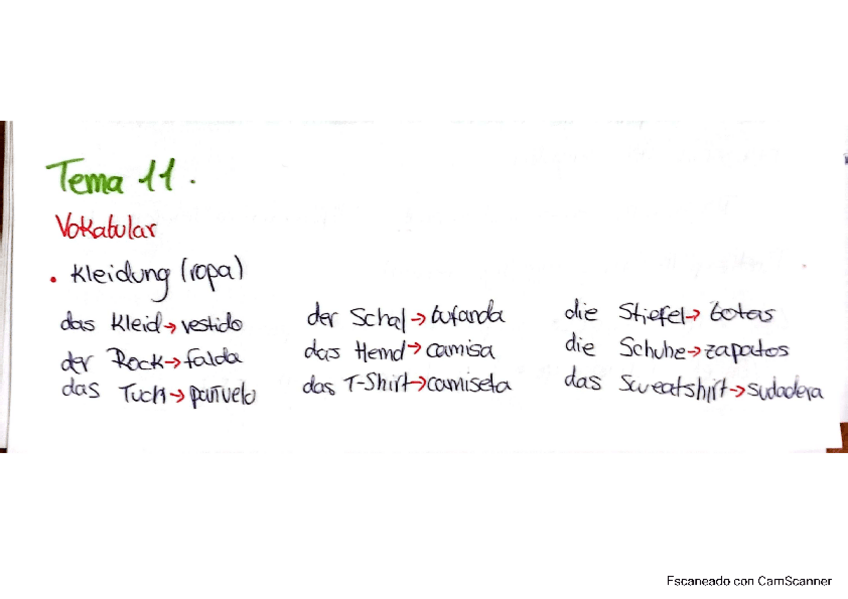 Tema 11.
Vokabular
• Kleidung (ropa)
das Kleid → vestido
der Rock → falda
das Tuch → pañuelo
der Schal → bufanda
das Hemd → camisa
das T-Shirt → camiseta
die Stiefel → botas
die Schuhe → zapatos
das Sweatshirt → sudadera
Escaneado con CamScanner